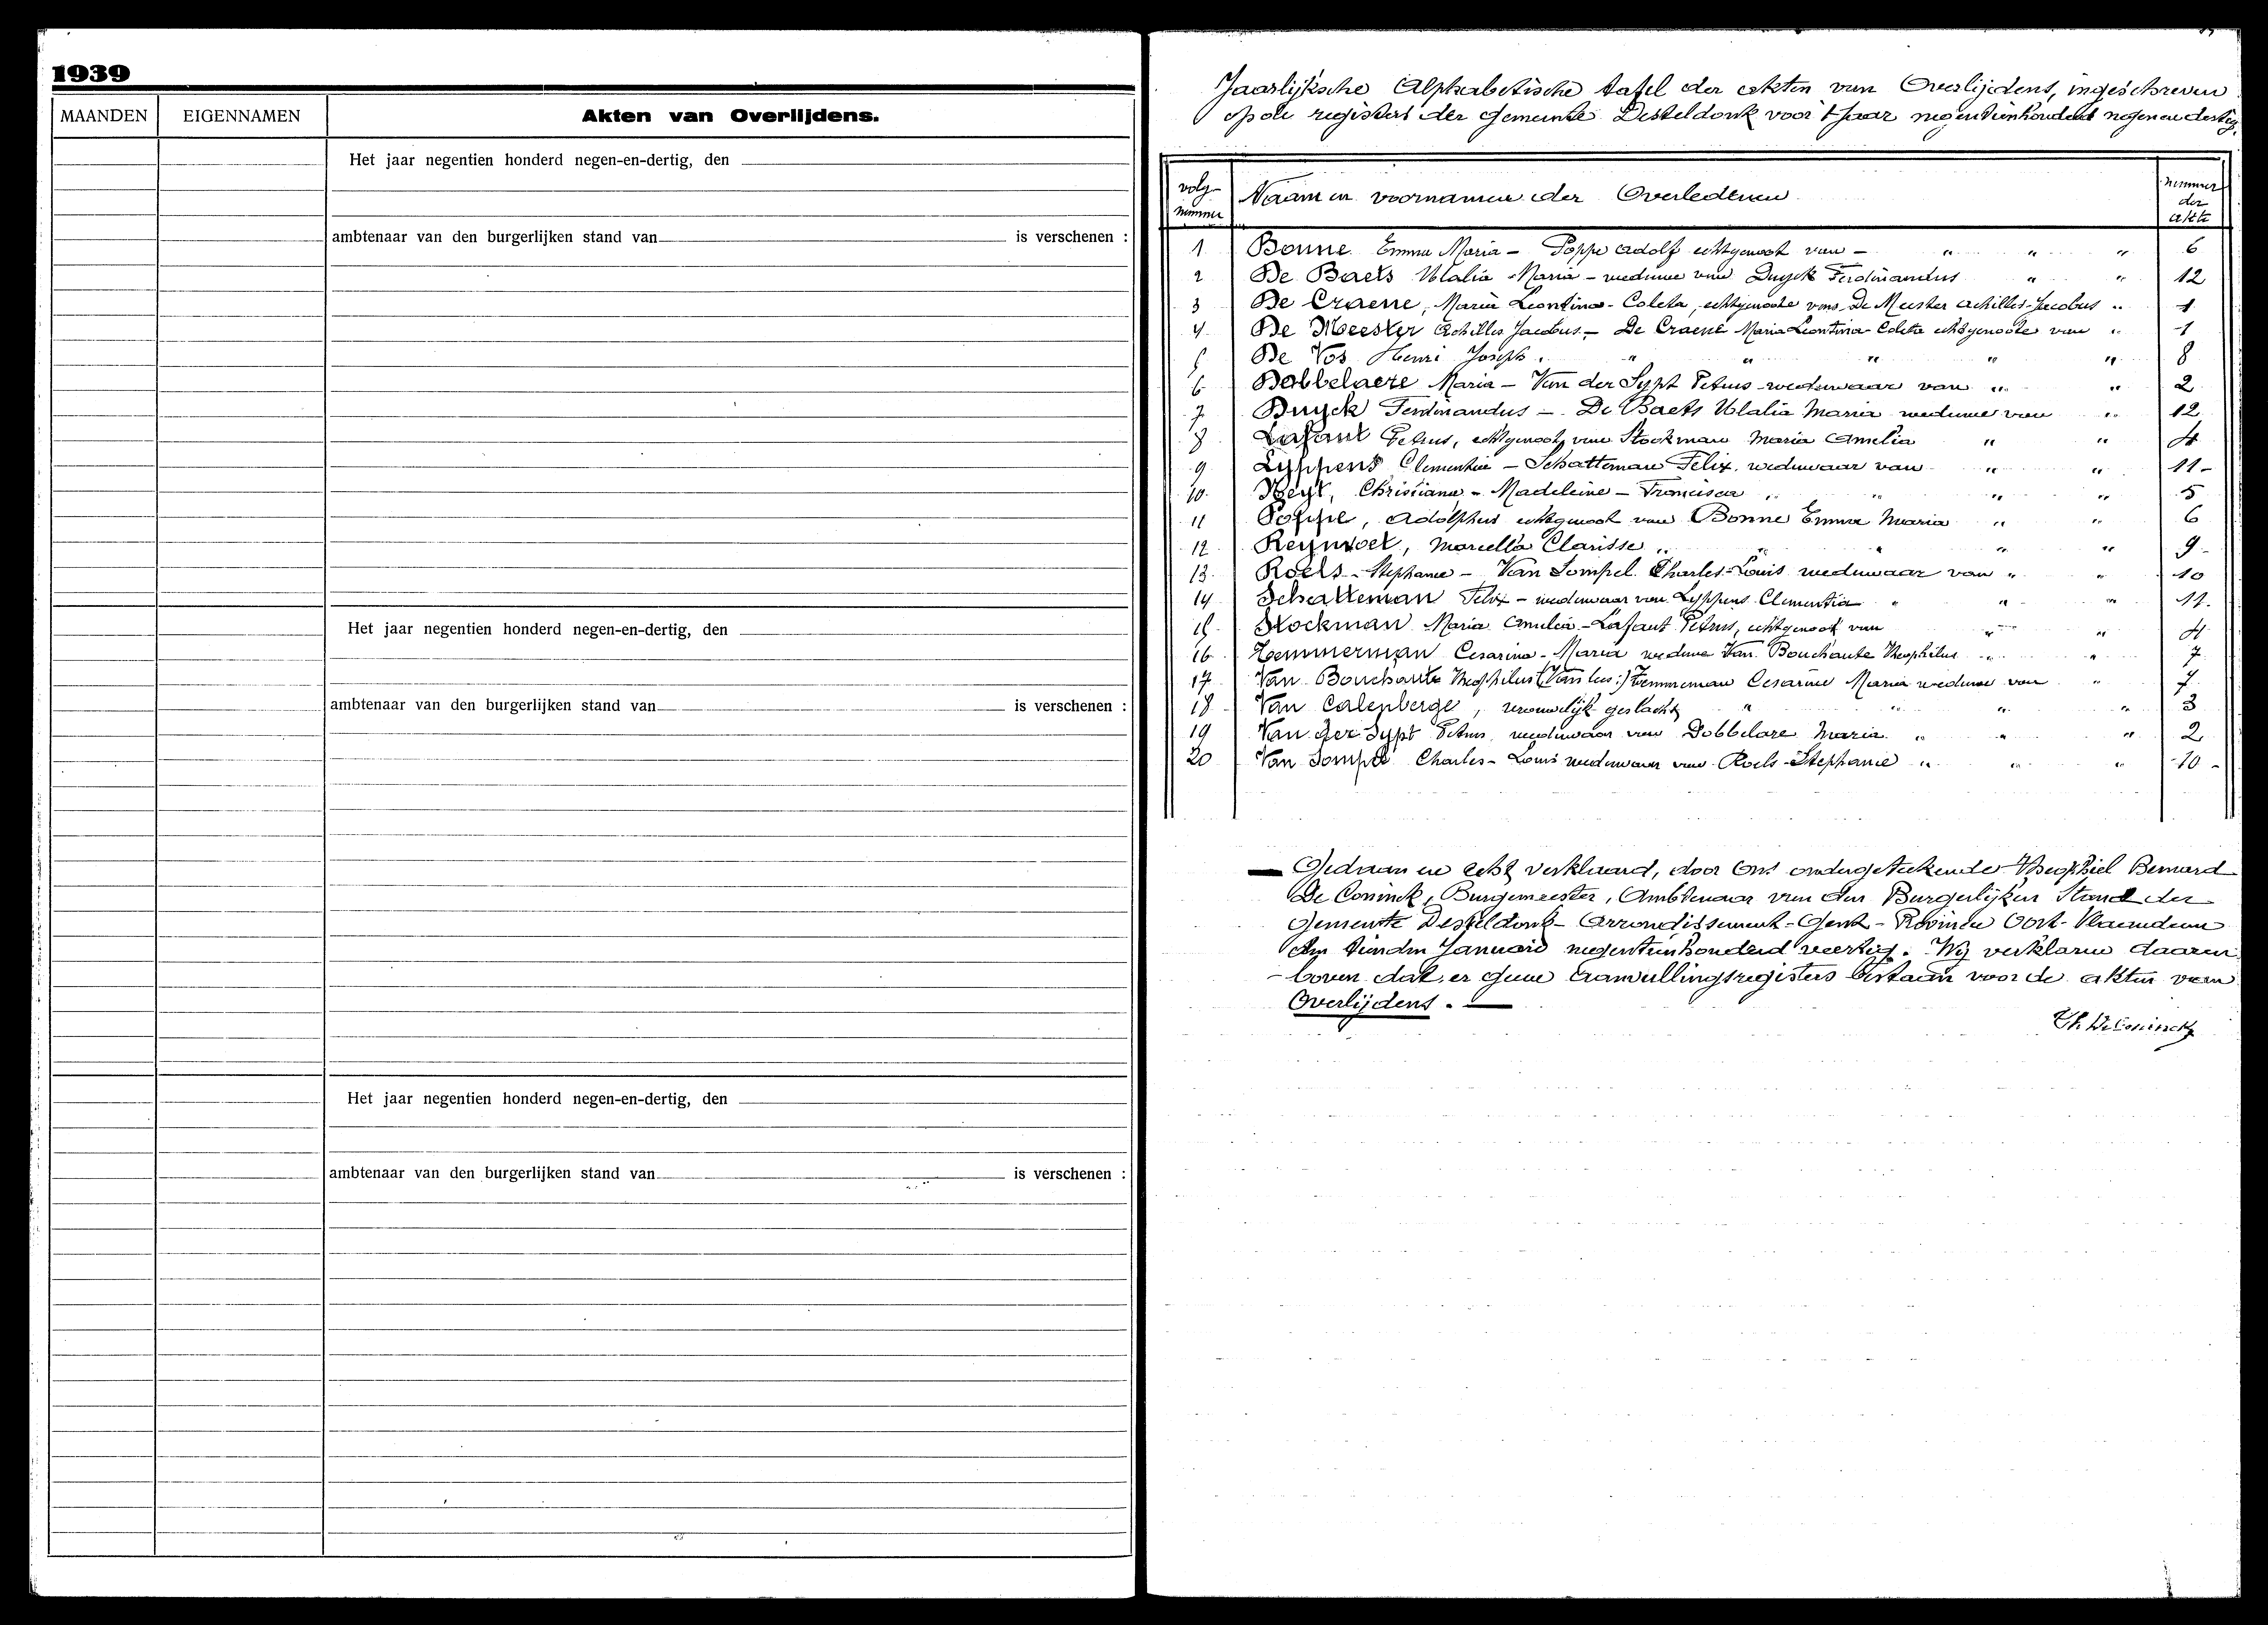 1939
MAANDEN EIGENNAMEN Akten van Overlijdens.
Het jaar negentien honderd negen-en-dertig, den
ambtenaar van den burgerlijken stand van is verschenen :
Het jaar negentien honderd negen-en-dertig, den
ambtenaar van den burgerlijken stand van is verschenen :
Het jaar negentien honderd negen-en-dertig, den
ambtenaar van den burgerlijken stand van is verschenen :
Jaarlijksche Alphabetische tafel der akten van Overlijdens, ingeschreven
op de registers der Gemeente Desteldonk voor 't Jaar negentienhonderd negen en dertig.
volg-nummer Naam en voornamen der Overledenen nummer der akte
1 Bonne Emma Maria - Poppe Adolf echtgenoot van - " " " 6
2 De Baets Ulalia Maria - weduwe van Duyck Ferdinandus " " 12
3 De Craene, Maria Leontina - Coleta, echtgenoote van De Meester Achilles-Jacobus " 1
4 De Meester Achilles Jacobus - De Craene Maria Leontina Coleta echtgenoote van " 1
5 De Vos Henri Joseph " " " " " " 8
6 Dobbelaere Maria - Van der Sypt Petrus weduwaar van " " 2
7 Duyck Ferdinandus - De Baets Ulalia Maria weduwe van " 12
8 Lafaut Petrus, echtgenoot van Stockman Maria Amelia " " 4
9 Lippens Clementia - Schatteman Felix weduwaar van " " 11-
10 Neyt, Christiana - Madeleine - Francisca " " " " 5
11 Poppe, Adolphus echtgenoot van Bonne Emma Maria " " 6
12 Reynvoet, Marcella Clarisse " " " " " 9-
13 Roels - Stephanie - Van Sompel Charles-Louis weduwaar van " " 10
14 Schatteman Felix - weduwaar van Lyppens Clementia " " " 11.
15 Stockman Maria Amelia - Lafaut Petrus, echtgenoot van " " 4
16 Temmerman Cesarina - Maria weduwe Van Bouchaute Theophilus " " 7
17 Van Bouchaute Theophilus Temmerman Cesarine Maria weduwe van " 7
18 Van Calenberge, vrouwelijk geslacht " " " " 3
19 Van der Sypt Petrus weduwaar van Dobbelare Maria " " " 2
20 Van Sompel Charles - Louis weduwaar van Roels Stephanie " " " 10-
Gedaan en echt verklaard, door Ons ondergeteekende Theophiel Bernard
De Coninck, Burgemeester, Ambtenaar van den Burgerlijken Stand der
Gemeente Desteldonk - Arrondissement - Gent - Provincie Oost-Vlaanderen
den tienden Januari negentienhonderd veertig. Wij verklaren daaren
boven dat er geene aanvullingsregisters bestaan voor de akten van
Overlijdens. -
Th. De Coninck